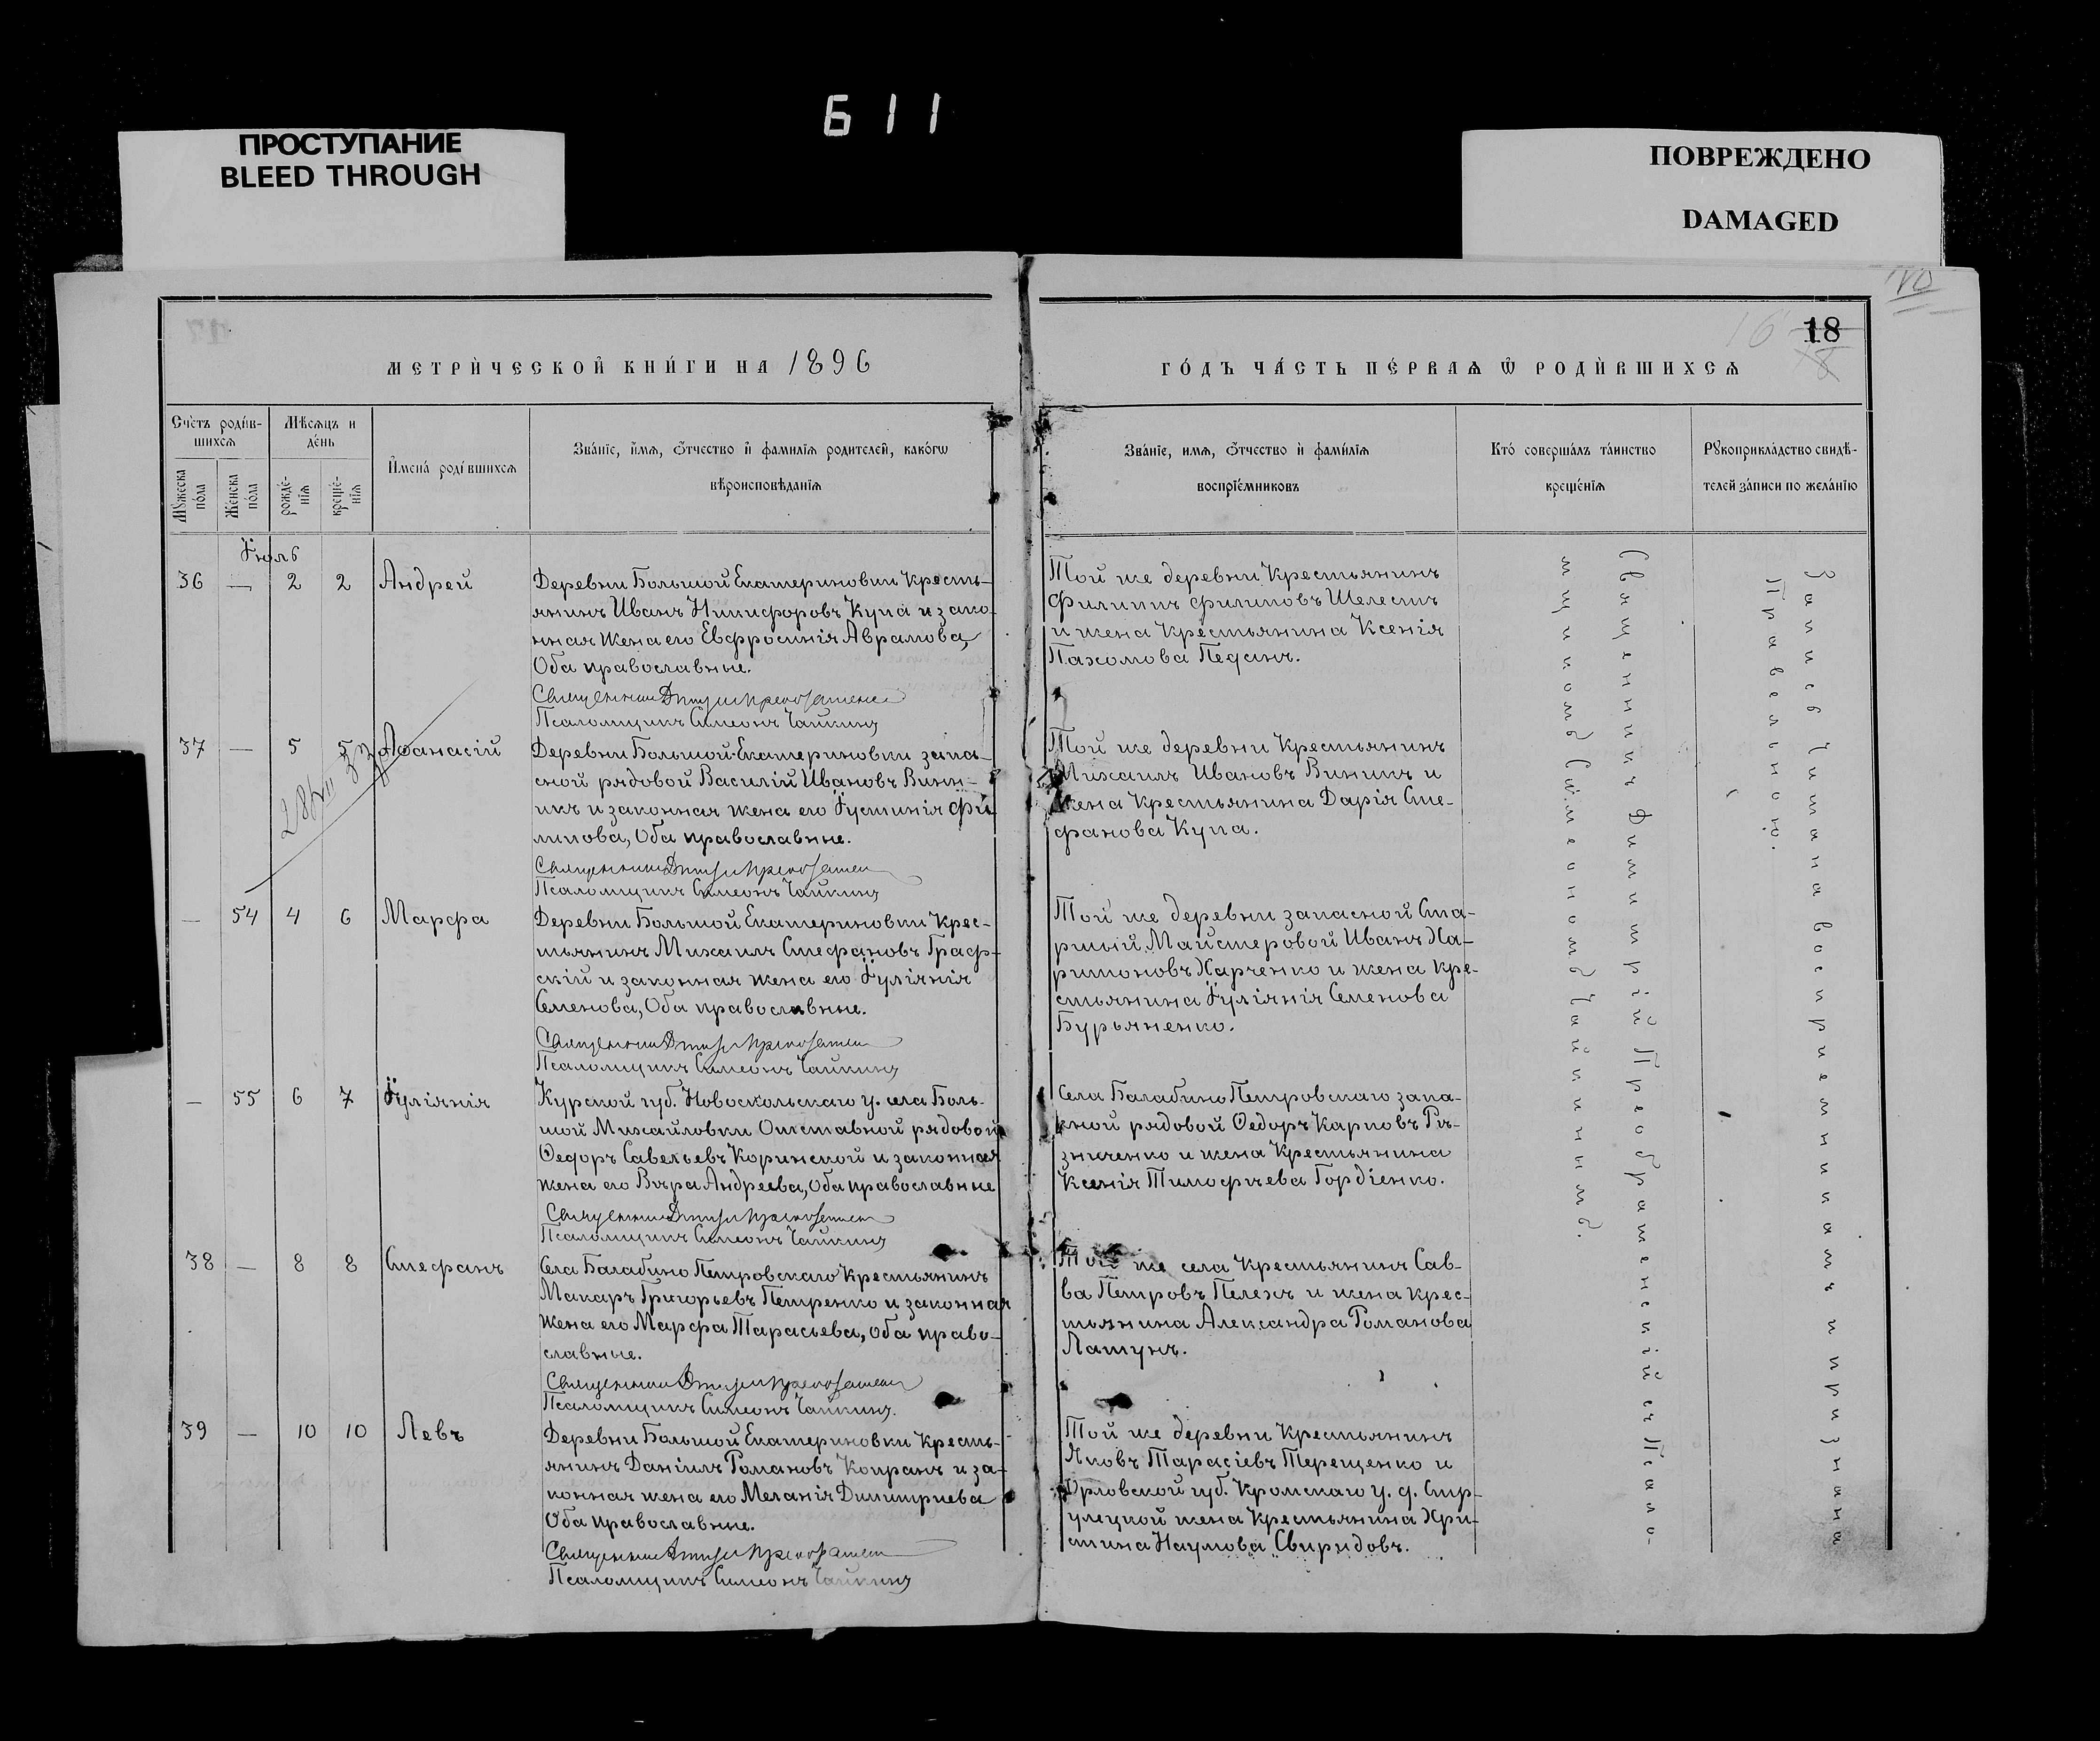 611
ПРОСТУПАНИЕ
BLEED THROUGH
ПОВРЕЖДЕНО
DAMAGED
16
18
МЕТРИ́ЧЕСКОЙ КНИ́ГИ НА 1896
ГО́ДЪ ЧА́СТЬ ПЕ́РВАѦ Ѿ РОДИ́ВШИХСѦ
Сче́тъ роди́в-
шихсѧ
Мѣсѧцъ и
де́нь
Мꙋ́жеска
по́ла
Же́нска
по́ла
рожде́-
нїѧ
креще́-
нїѧ
И҆мена̀ роди́вшихсѧ
Зва́нїе, и҆́мѧ, ѻ҆́тчество и҆ фами́лїѧ роди́телей, како́гѡ
вѣроисповѣ́данїѧ
Зва́нїе, имѧ, ѻ҆́тчество и҆ фами́лїѧ
воспрїе́мниковъ
Кто̀ соверша́лъ та́инство
креще́нїѧ
Рꙋкоприкла́дство свидѣ́-
телей за́писи по жела́нїю
Іюль
36 — 2 2 Андрей
Деревни Большой Екатериновки Кресть-
янинъ Иванъ Никифоровъ Купа и зако-
нная жена его Евфросинія Аврамова,
Оба православные.
Священникъ Димитрій Преображенскій
Псаломщикъ Симеонъ Чайкинъ
Той же деревни Крестьянинъ
Филиппъ Филиповъ Шелестъ
и жена Крестьянина Ксенія
Пахомова Педанъ.
37 — 5 5 Афанасій
Деревни Большой Екатериновки запа-
сной рядовой Василій Ивановъ Винн-
икъ и законная жена его Іустинія Фи-
липова, Оба православные.
Священникъ Димитрій Преображенскій
Псаломщикъ Симеонъ Чайкинъ
Той же деревни Крестьянинъ
Михаилъ Ивановъ Виникъ и
жена Крестьянина Дарія Сте-
фанова Купа.
— 54 4 6 Марфа
Деревни Большой Екатериновки Крес-
тьянинъ Михаилъ Стефановъ Граф-
скій и законная жена его Іуліянія
Семенова, Оба православные.
Священникъ Димитрій Преображенскій
Псаломщикъ Симеонъ Чайкинъ
Той же деревни запасной Ста-
ршій Майстеровой Иванъ Ха-
ритоновъ Харченко и жена Кре-
стьянина Іуліянія Семенова
Бурьяненко.
— 55 6 7 Іуліянія
Курской губ. Новоскольскаго у. села Боль-
шой Михайловки Отставной рядовой
Ѳедоръ Савельевъ Коринской и законная
жена его Вѣра Андреева, Оба православные
Священникъ Димитрій Преображенскій
Псаломщикъ Симеонъ Чайкинъ
Села Балабино Петровскаго запа-
сной рядовой Ѳедоръ Карповъ Рѣ-
зниченко и жена Крестьянина
Ксенія Тимофѣева Гордіенко.
38 — 8 8 Стефанъ
Села Балабино Петровскаго Крестьянинъ
Макаръ Григорьевъ Петренко и законная
жена его Марфа Тарасьева, оба право-
славные.
Священникъ Димитрій Преображенскій
Псаломщикъ Симеонъ Чайкинъ.
Той же села Крестьянинъ Сав-
ва Петровъ Пелехъ и жена крес-
тьянина Александра Романова
Латунъ.
39 — 10 10 Левъ
Деревни Большой Екатериновки Кресть-
янинъ Даніилъ Романовъ Копранъ и за-
конная жена его Меланія Димитриева
Оба православные.
Священникъ Димитрій Преображенскій
Псаломщикъ Симеонъ Чайкинъ
Той же деревни Крестьянинъ
Яковъ Тарасіевъ Терещенко и
Орловской губ. Кромскаго у. д.
жена Крестьянина Хри-
стина Наумова Свиридовъ.
Священникъ Димитрій Преображенскій съ Псало-
мщикомъ Симеономъ Чайкинымъ.
Запись читана воспріемникамъ и признана
Правельной.